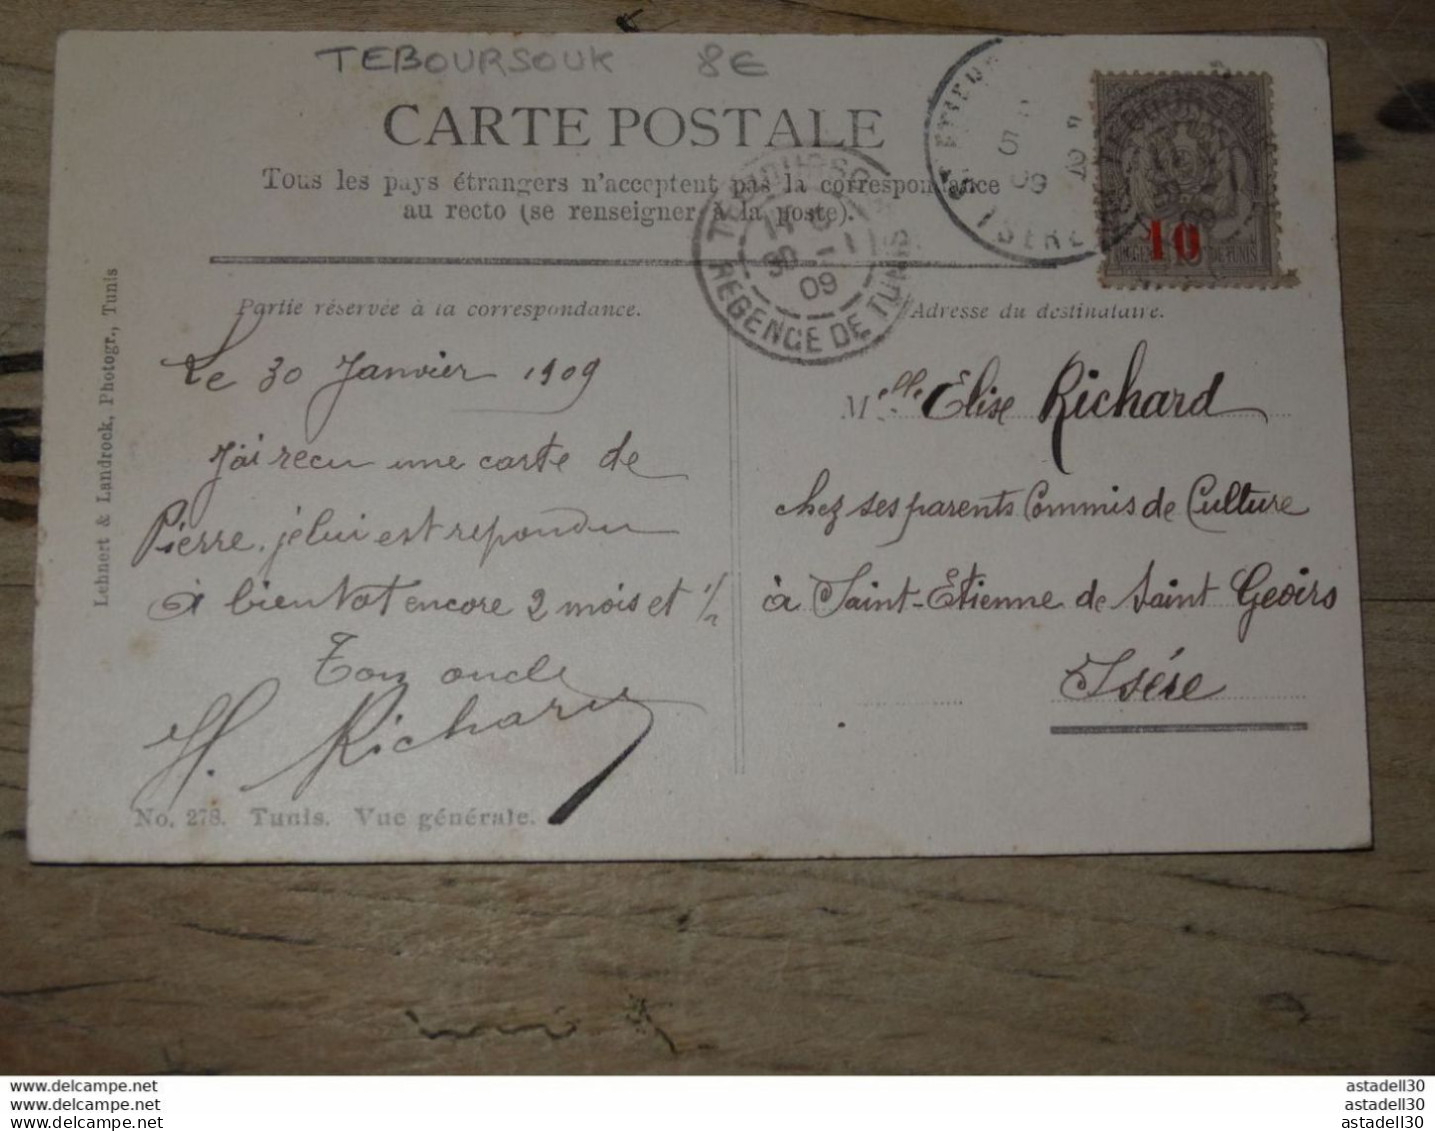 TEBOURSOUK 8E
CARTE POSTALE
Tous les pays étrangers n'acceptent pas la correspondance
au recto (se renseigner à la poste).
TEBOURSOUK
14 30 -1 09
REGENCE DE TUNIS
ST ETIENNE
5 09
ISERE
10
REGENCE DE TUNIS
Partie réservée à la correspondance.
Adresse du destinataire.
Le 30 Janvier 1909
J'ai recu une carte de
Pierre, je lui est repondu
à bientot encore 2 mois et 1/2
Ton oncle
H. Richard
Melle Elise Richard
chez ses parents Commis de Culture
à Saint-Etienne de Saint Geoirs
Isére
No. 278. Tunis. Vue générale.
Lehnert & Landrock, Photogr., Tunis
www.delcampe.net
www.delcampe.net
www.delcampe.net
astadell30
astadell30
astadell30